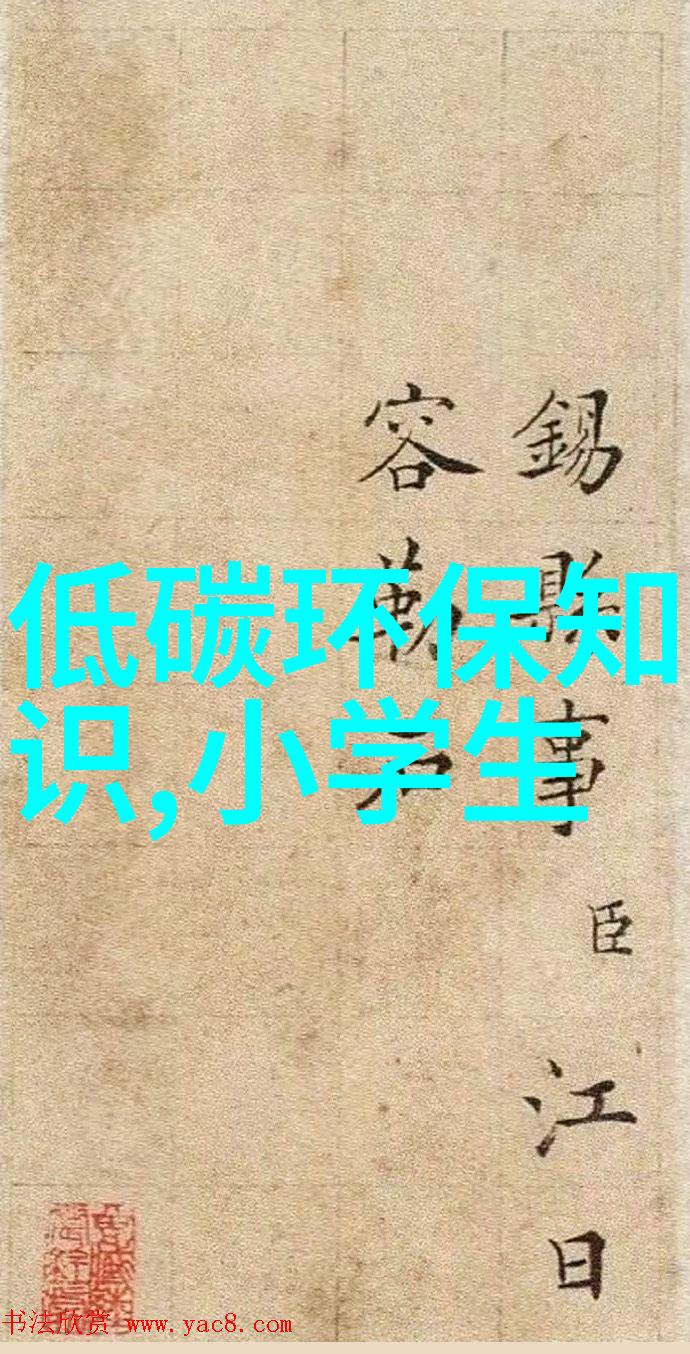 低碳环保知
识,小学生
錫縣事臣江日
容勒石
书法欣赏 www.yac8.com